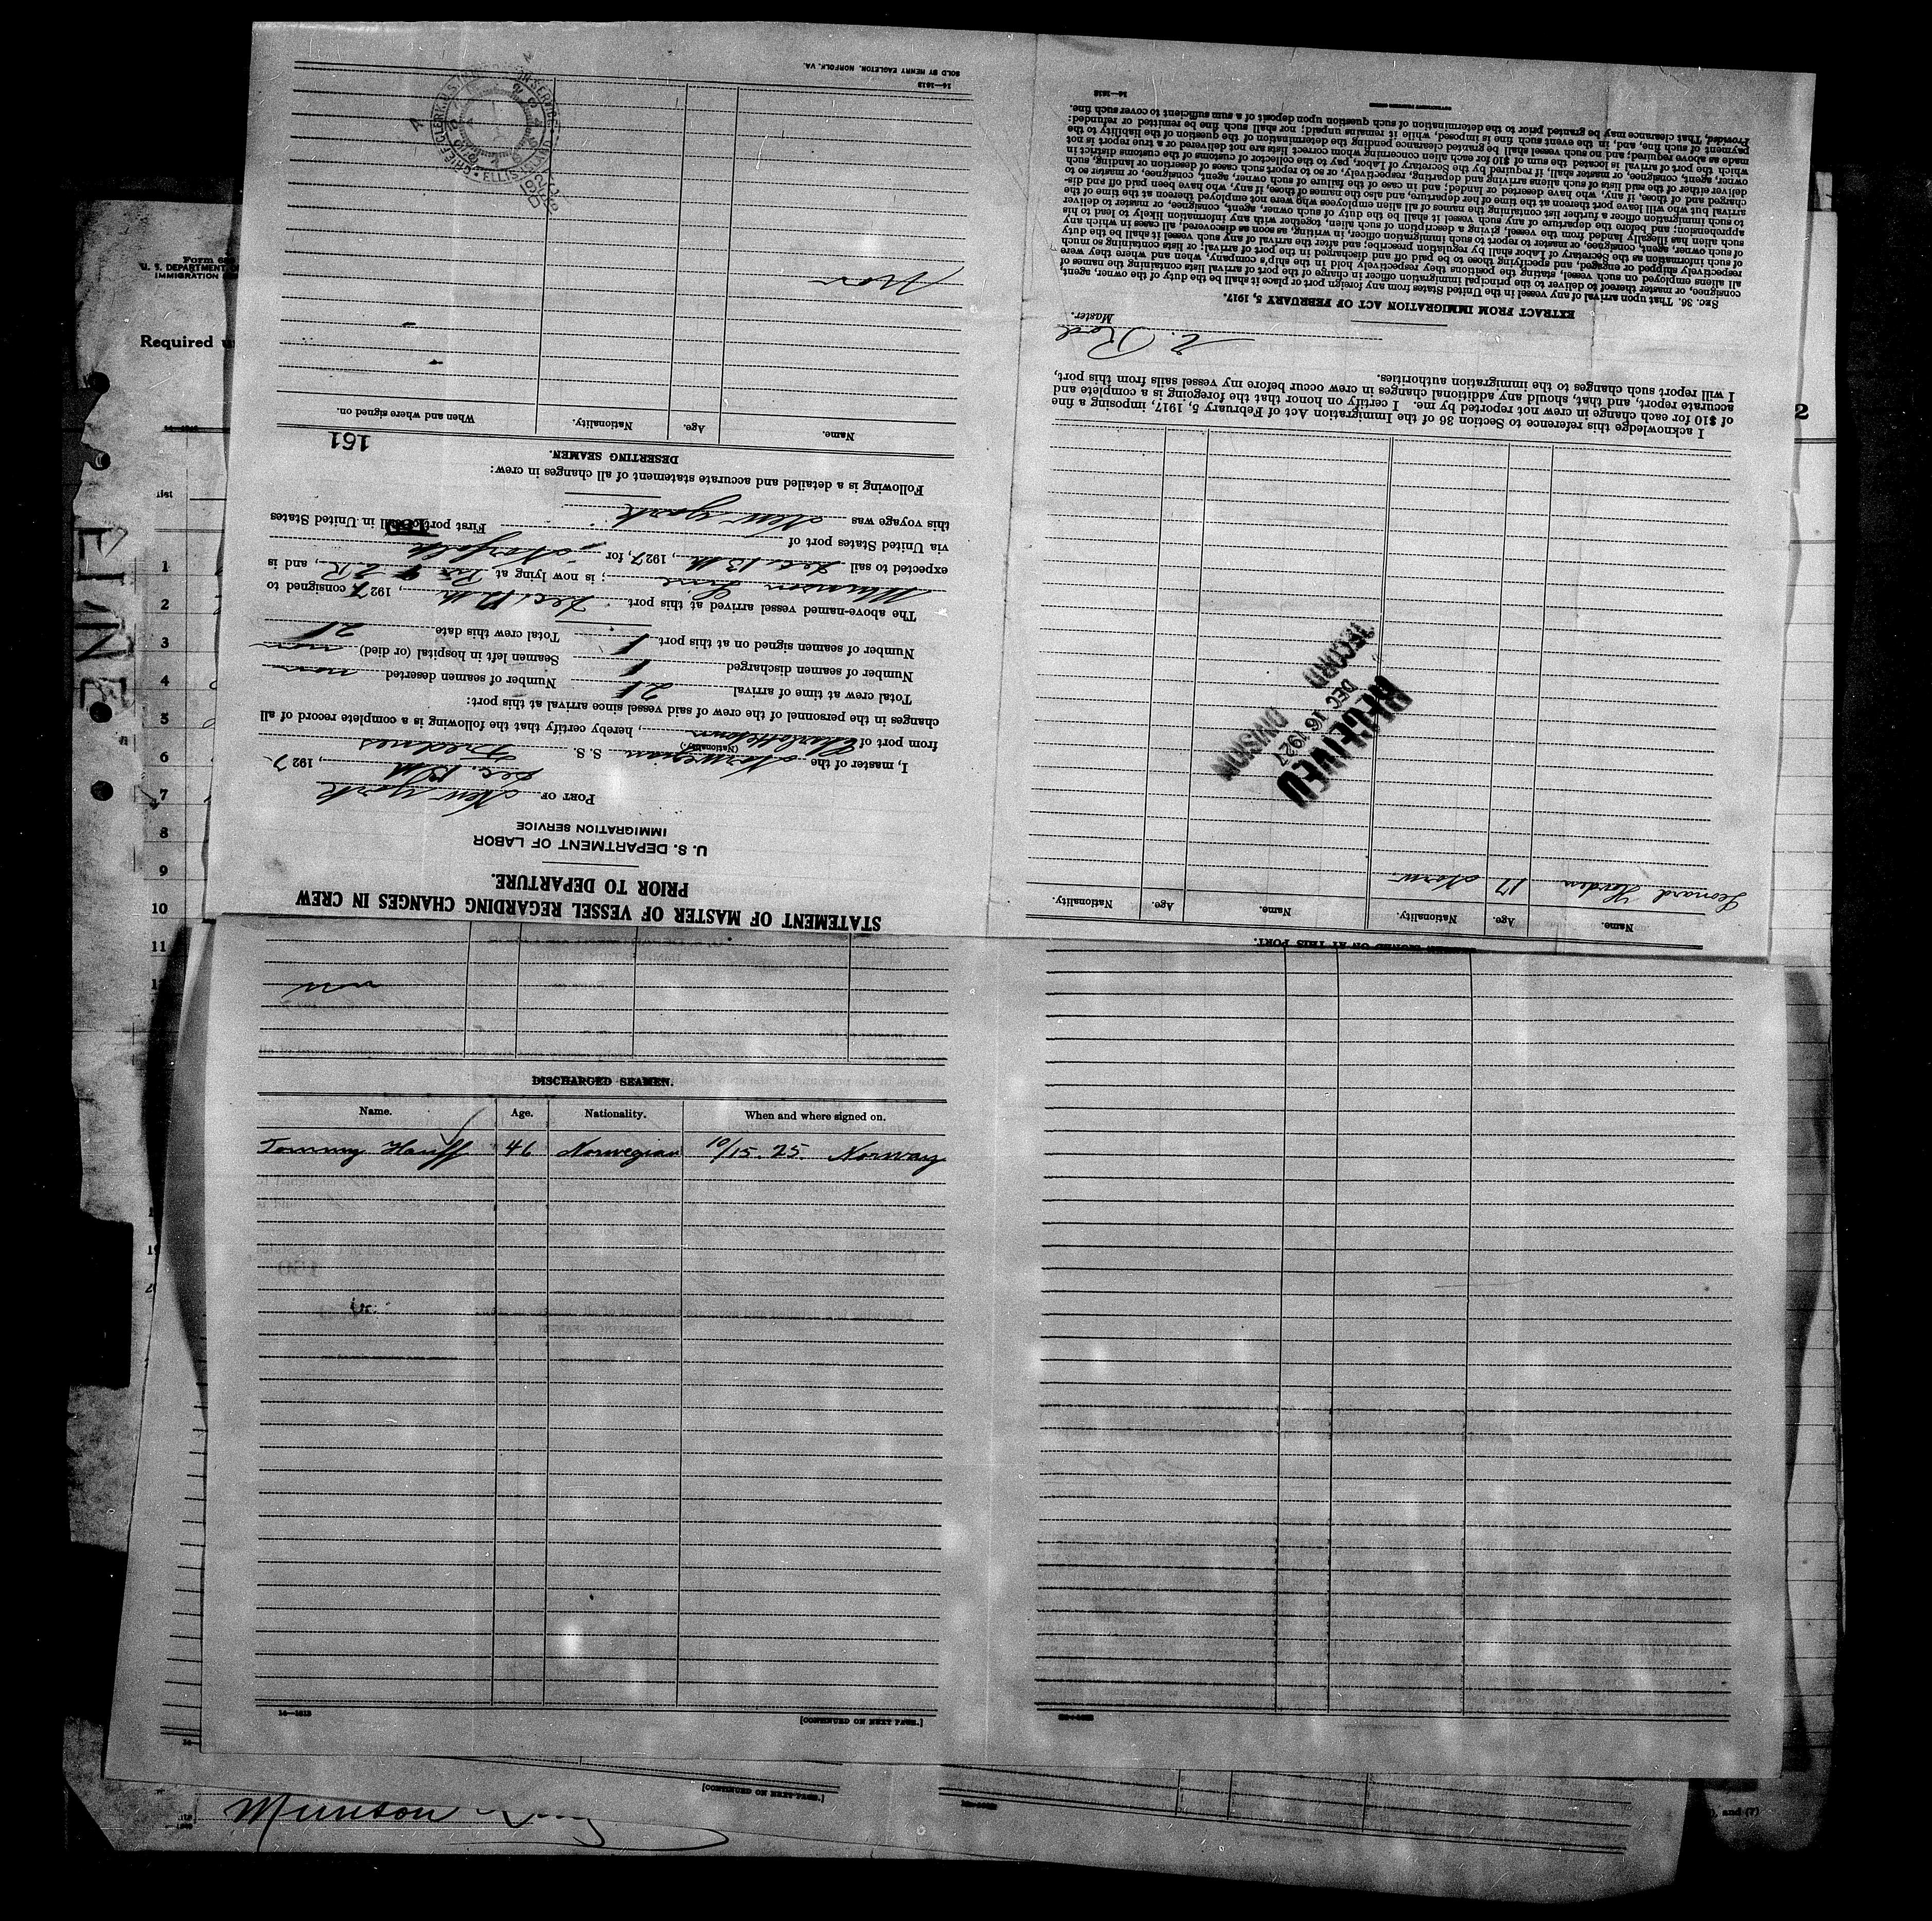 STATEMENT OF MASTER OF VESSEL REGARDING CHANGES IN CREW
PRIOR TO DEPARTURE.
U. S. DEPARTMENT OF LABOR
IMMIGRATION SERVICE
PORT OF New York
Dec. 12th, 1927
I, master of the Norwegian S. S.
(Nationality.)
from port of Charlottetown, hereby certify that the following is a complete record of all
changes in the personnel of the crew of said vessel since arrival at this port:
Total crew at time of arrival 21 Number of seamen deserted none
Number of seamen discharged 1 Seamen left in hospital (or died) none
Number of seamen signed on at this port 1 Total crew this date 21
The above-named vessel arrived at this port Dec. 12th, 1927, consigned to
Munson Line; is now lying at E. R., and is
expected to sail Dec. 13th, 1927, for Norfolk
via United States port of First port of call in United States
this voyage was New York
Following is a detailed and accurate statement of all changes in crew:
DESERTING SEAMEN.
161
Name. Age. Nationality. When and where signed on.
14—1613
SOLD BY HENRY EAGLETON, NORFOLK, VA.
SIGNED ON AT THIS PORT.
Name. Age. Nationality. Name. Age. Nationality.
Leonard 17 Norw.
RECEIVED
DEC 16 1927
RECORD DIVISION
I acknowledge this reference to Section 36 of the Immigration Act of February 5, 1917, imposing a fine
of $10 for each change in crew not reported by me. I certify on honor that the foregoing is a complete and
accurate report, and that, should any additional changes in crew occur before my vessel sails from this port,
I will report such changes to the immigration authorities.
Master.
EXTRACT FROM IMMIGRATION ACT OF FEBRUARY 5, 1917.
SEC. 36. That upon arrival of any vessel in the United States from any foreign port or place it shall be the duty of the owner, agent,
consignee, or master thereof to deliver to the principal immigration officer in charge of the port of arrival lists containing the names of
all aliens employed on such vessel, stating the positions they respectively hold in the ship's company, when and where they were
respectively shipped or engaged, and specifying those to be paid off and discharged in the port of arrival; or lists containing so much
of such information as the Secretary of Labor shall by regulation prescribe; and after the arrival of any such vessel it shall be the duty
of such owner, agent, consignee, or master to report to such immigration officer, in writing, as soon as discovered, all cases in which any
such alien has illegally landed from the vessel, giving a description of such alien, together with any information likely to lead to his
apprehension; and before the departure of any such vessel it shall be the duty of such owner, agent, consignee, or master to deliver
to such immigration officer a further list containing the names of all alien employees who were not employed thereon at the time of the
arrival but who will leave port thereon at the time of her departure, and also the names of those, if any, who have been paid off and dis-
charged and of those, if any, who have deserted or landed; and in case of the failure of such owner, agent, consignee, or master so to
deliver either of the said lists of such aliens arriving and departing, respectively, or so to report such cases of desertion or landing, such
owner, agent, consignee, or master shall, if required by the Secretary of Labor, pay to the collector of customs of the customs district in
which the port of arrival is located the sum of $10 for each alien concerning whom correct lists are not delivered or a true report is not
made as above required; and no such vessel shall be granted clearance pending the determination of the question of the liability to the
payment of such fine, and, in the event such fine is imposed, while it remains unpaid; nor shall such fine be remitted or refunded:
Provided, That clearance may be granted prior to the determination of such question upon deposit of a sum sufficient to cover such fine.
14—1613
DISCHARGED SEAMEN.
Name. Age. Nationality. When and where signed on.
Tommy Hauff 46 Norwegian 10/15. 25. Norway
14—1613
[CONTINUED ON NEXT PAGE.]
[CONTINUED ON NEXT PAGE.]
Munson
Required
LINE
1
2
3
4
5
6
7
8
9
10
11
2